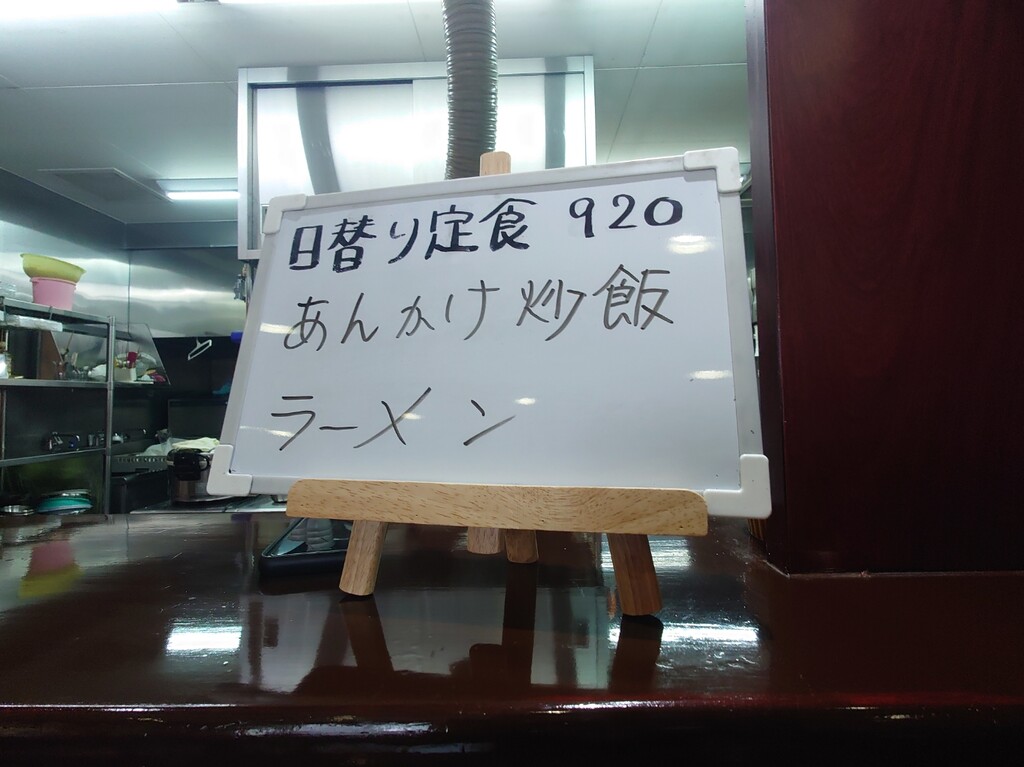 日替り定食 920
あんかけ炒飯
ラーメン